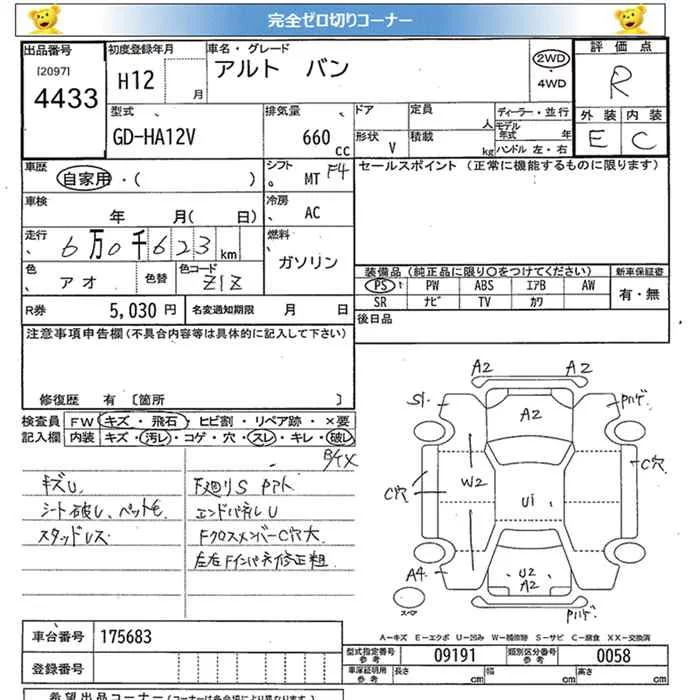 完全ゼロ切りコーナー
出品番号 初度登録年月 車名・グレード 評価点
[2097] H12 月 アルト バン 2WD ・4WD R
4433
型式 排気量 ドア 定員 人 ディーラー・並行 外装 内装
GD-HA12V 660 cc 形状 V 積載 kg モデル年式 年 ハンドル 左・右 E C
車歴 自家用・( ) シフト MT F4 セールスポイント (正常に機能するものに限ります)
車検 年 月( 日) 冷房 AC
走行 6万0千623km 燃料 ガソリン
色 アオ 色替 色コード Z1Z
装備品(純正品に限り○をつけてください) 新車保証書
PS PW ABS エアB AW 有・無
SR ナビ TV カワ
R券 5,030円 名変通知期限 月 日 後日品
注意事項申告欄(不具合内容等は具体的に記入して下さい)
修復歴 有 〔箇所 〕
検査員 FW キズ・飛石・ヒビ割・リペア跡・×要
記入欄 内装 キズ・汚レ・コゲ・穴・スレ・キレ・破レ
キズU
シート破レ、ペット毛
スタッドレス
F廻りS Pアト
エンドパネルU
FクロスメンバーC穴大
左右Fインパネ修正粗
A2 A2
S1 A2 Pハゲ
C穴 W2 U1 C穴
A4 U2 A2
スペア Pハゲ
A-キズ E-エクボ U-凹み W-補修跡 S-サビ C-腐食 XX-交換済
車台番号 175683
型式指定番号 参考 09191 類別区分番号 参考 0058
登録番号
車庫証明用 参考 長さ cm 幅 cm 高さ cm
希望出品コーナー